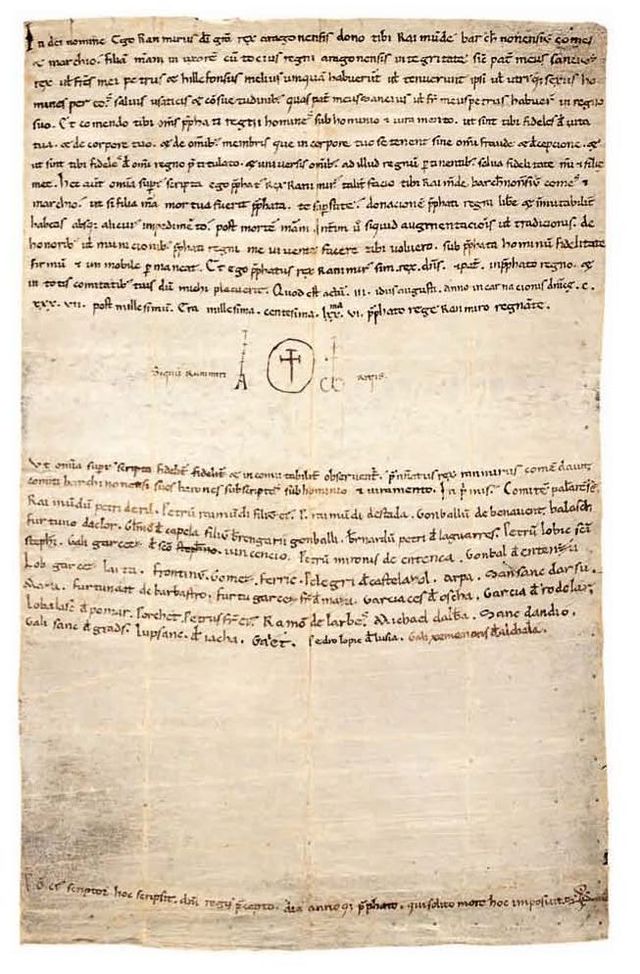 In dei nomine. Ego Ranimirus dī grā. rex aragonensis dono tibi Raimūde barchinonensiū comes
& marchio. filiā meam in uxorē cū tocius regni aragonensis integritate sic pat̄ meus sancius
rex ul fr̄s mei petrus & hillefonsus melius unquā habuerunt ul tenuerunt ipsi ul utriq; sexus ho
mines per eos salvis usaticis & cōsuetudinib; quas pat̄ meus sancius ul fr̄ meus petrus habuer̄ in regno
suo. Et comendo tibi oms p̄phati regni homines sub hominio & iuramento. ut sint tibi fideles d̄ vita
tua. & de corpore tuo. & de omib; membris que in corpore tuo se tenent sine omī fraude & decepcione. &
ut sint tibi fideles d̄ omī regno p̄titulato. & universis omib; ad illud regnū ptinentib; salva fidelitate mī & filie
mee. Hec aut̄ omia supr̄scripta ego p̄phat; Rex Ranimir; talit̄ facio tibi Raimūde. barchñonsiū comes &
marchio. ut si filia mea mortua fuerit p̄phata. te sup̄stite. donacionē p̄phati regni libe & inmutabilit̄
habeas absq; alicui; impedimēto. post mortē meam. Intim ū siquid augmentacionis ul tradicionis. de
honorib; ul municionib; p̄phati regni me vivente facere tibi voluero. sub p̄phata hominū fidelitate
firmū & inmobile pmaneat. Et ego p̄phatus rex Ranimir; sim. rex. dñs. & pat̄. in p̄phato regno. &
in totis comitatib; tuis dū michi placuerit. Quod est actū. iii. idus augusti. anno incarnacionis dñice. c.
xxx. vii. post millesimū. Era millesima. centesima. lxxma. vi. p̄phato rege Ranimiro regnante.
Signū Ranimiri regis.
Ut omia supr̄scripta fidelit̄ fidelit̄ & incomutabilit̄ observent̄. p̄notatus rex ranimirus comēdavit
comiti barchinonensi suos barones subscriptos sub hominio & iuramento. In p̄mis. Comitē palarensē.
Raimūdū petri de ril. Petrū raimūdi filiū ei;. P. raimūdi destada. Gonballū de benavent. balasch
furtunio daclor. Gllmū d̄ capela filiū berengarii gomballi. Bernardū petri d̄ laguarres. Petrū lobic scī
stephi. Gali garcez d̄ scō vincencio. Petrū mironis de entenca. Gonbal d̄ entenza
Lob garcez laita. Frontinū. Gomez. Ferric. Pelegri d̄ castelazol. Arpa. Sansanc darsu.
Maza. furtunat de barbastro. furtu garcez fr̄ d̄ maza. Garcia ces d̄ oscha. Garcia d̄ rodelar.
Lobalasc d̄ pomar. Porchet. Petrus fr̄ ei;. Ramō de larbes. Michael dalba. Sanc dandio.
Gali sanc d̄ grads. lupsanc. d̄ iacha. Galet. Pedro lopic d̄ lusia. Gali xemenons d̄ alchala.
P. ce scriptor hoc scripsit. dñi regis p̄cepto. die annoq; p̄phato. qui solito more hoc imposuit